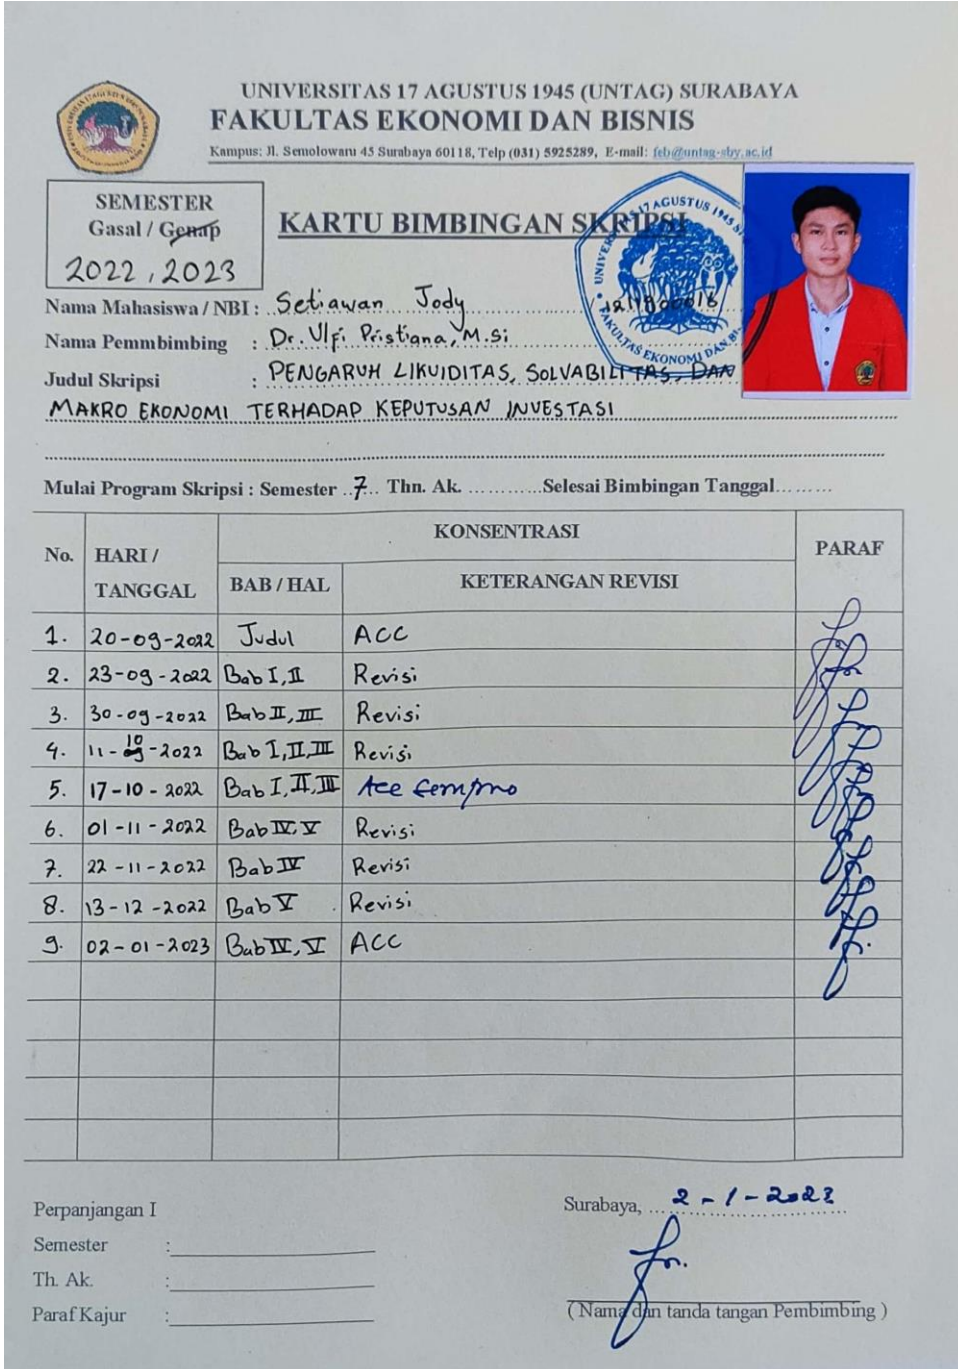 UNIVERSITAS 17 AGUSTUS 1945 (UNTAG) SURABAYA
FAKULTAS EKONOMI DAN BISNIS
Kampus: Jl. Semolowaru 45 Surabaya 60118, Telp (031) 5925289, E-mail: feb@untag-sby.ac.id
SEMESTER
Gasal / Genap
2022, 2023
KARTU BIMBINGAN SKRIPSI
Nama Mahasiswa / NBI : Setiawan Jody
Nama Pemmbimbing : Dr. Ulfi Pristiana, M.Si
Judul Skripsi : PENGARUH LIKUIDITAS, SOLVABILITAS, DAN
MAKRO EKONOMI TERHADAP KEPUTUSAN INVESTASI
Mulai Program Skripsi : Semester ..7.. Thn. Ak. ............Selesai Bimbingan Tanggal.........
No. HARI / TANGGAL KONSENTRASI PARAF
BAB / HAL KETERANGAN REVISI
1. 20-09-2022 Judul ACC
2. 23-09-2022 Bab I, II Revisi
3. 30-09-2022 Bab II, III Revisi
4. 11-10-2022 Bab I, II, III Revisi
5. 17-10-2022 Bab I, II, III Acc Sempro
6. 01-11-2022 Bab IV, V Revisi
7. 22-11-2022 Bab IV Revisi
8. 13-12-2022 Bab V Revisi
9. 02-01-2023 Bab IV, V ACC
Perpanjangan I
Semester :
Th. Ak. :
Paraf Kajur :
Surabaya, 2-1-2023
( Nama dan tanda tangan Pembimbing )